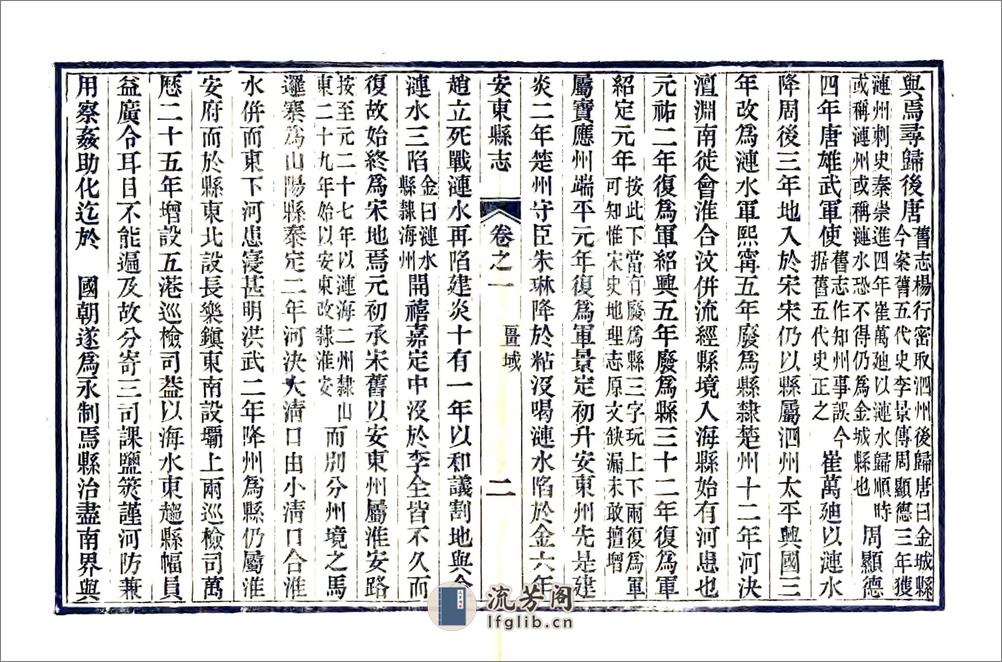 與焉尋歸後唐舊志楊行密取泗州後歸唐曰金城縣今案舊五代史李景傳周顯德三年獲
漣州刺史秦崇進四年崔萬廸以漣水歸順時或稱漣州或稱漣水恐不得仍為金城縣也周顯德
四年唐雄武軍使舊志作知州事誤今据舊五代史正之崔萬廸以漣水
降周後三年地入於宋宋仍以縣屬泗州太平興國三
年改為漣水軍熙寧五年廢為縣隸楚州十二年河決
澶淵南徙會淮合汶併流經縣境入海縣始有河患也
元祐二年復為軍紹興五年廢為縣三十二年復為軍
紹定元年按此下當有廢為縣三字玩上下兩復為軍可知惟宋史地理志原文缺漏未敢擅增
屬寶應州端平元年復為軍景定初升安東州先是建
炎二年楚州守臣朱琳降於粘沒喝漣水陷於金六年
安東縣志 卷之一 疆域 二
趙立死戰漣水再陷建炎十有一年以和議割地與金
漣水三陷金曰漣水縣隸海州開禧嘉定中沒於李全皆不久而
復故始終為宋地焉元初承宋舊以安東州屬淮安路
按至元二十七年以漣海二州隸山東二十九年始以安東改隸淮安而別分州境之馬
邏寨為山陽縣泰定二年河決大清口由小清口合淮
水併而東下河患寖甚明洪武二年降州為縣仍屬淮
安府而於縣東北設長樂鎮東南設壩上兩巡檢司萬
厯二十五年增設五港巡檢司葢以海水東趨縣幅員
益廣令耳目不能遍及故分寄三司課鹽筴謹河防兼
用察姦助化迄於 國朝遂為永制焉縣治盡南界與
流芳阁
lfglib.cn